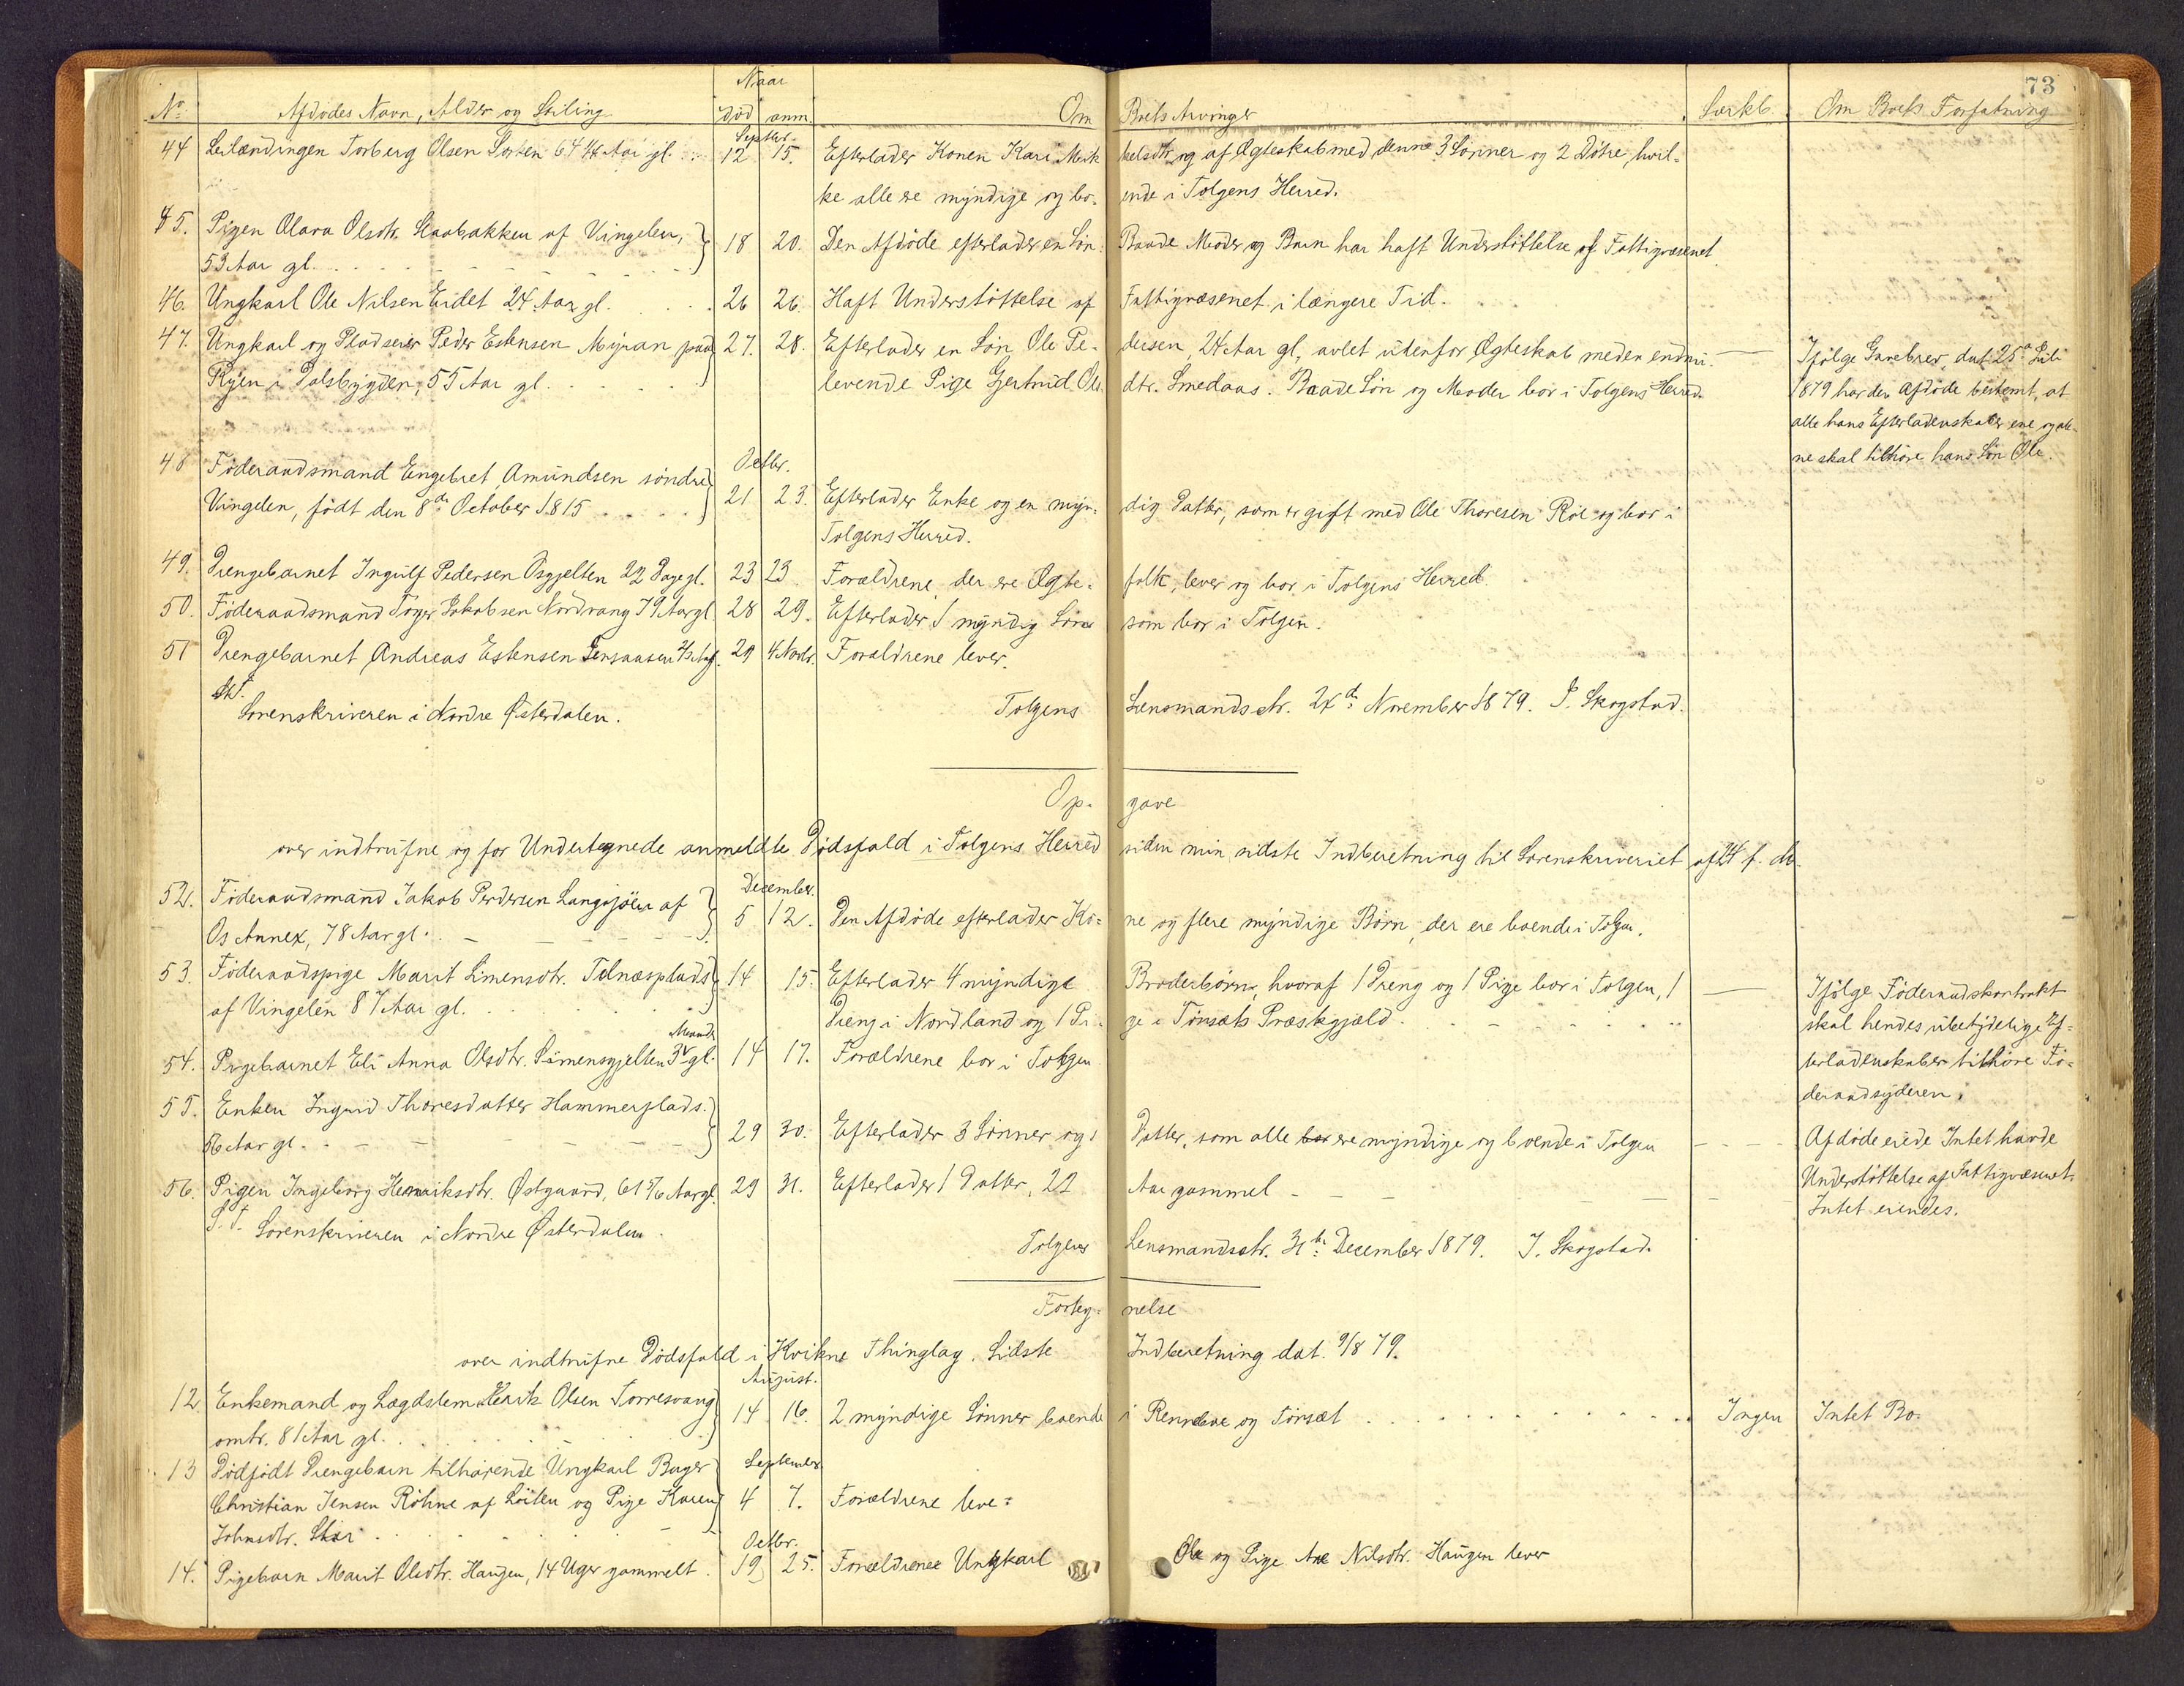 73
Naar
No. Afdødes Navn, Alder og Stiling død anm. Om Boets Arvinger Særkb. Om Boets Forfatning
Septbr.
44 Leilændingen Torberg Olsen Sorken 64 Aar gl. 12 15. Efterlader Konen Kari Mik kelsdtr. og af Ægteskab med denne 3 Sønner og 2 Døtre, hvil-
ke alle ere myndige og bo- ende i Tolgens Herred.
45. Pigen Olava Olsdtr. Staabakken af Vingelen, 18 20. Den Afdøde efterlader en Søn. Baade Moder og Barn har haft Understøttelse af Fattigvæsenet
53 Aar gl.
46. Ungkarl Ole Nilsen Eidet 24 Aar gl. 26 26. Haft Understøttelse af Fattigvæsenet i længere Tid.
47. Ungkarl og Pladseier Peder Estensen Myran paa 27. 28. Efterlader en Søn, Ole Pe- dersen, 24 Aar gl, avlet udenfor Ægteskab med en endnu- — Ifølge Gavebrev, dat. 25de Juli
Ryen i Dalsbygden, 55 Aar gl. levende Pige Gjertrud Ols dtr. Smedaas. Baade Søn og Moder bor i Tolgens Herred. 1879 har den Afdøde bestemt, at
alle hans Efterladenskaber ene og ale-
ne skal tilhøre hans Søn Ole.
Octbr.
48 Føderaadsmand Engebret Amundsen søndre
Vingelen, født den 8de October 1815 21 23. Efterlader Enke og en myn- dig Datter, som er gift med Ole Thoresen Roe og bor i
Tolgens Herred.
49. Drengebarnet Ingulf Pedersen Osgjelten 22 Dage gl. 23 23 Forældrene, der ere Ægte- folk, lever og bor i Tolgens Herred.
50. Føderaadsmand Toger Jakobsen Nordvang 79 Aar gl. 28 29. Efterlader 1 myndig Søn som bor i Tolgen.
51 Drengebarnet Andreas Estensen 29 4 Novbr. Forældrene lever.
S.T.
Sorenskriveren i Nordre Østerdalen. Tolgens Lensmandsetr. 24de November 1879. J. Skogstad.
Op- gave
over indtrufne og for Undertegnede anmeldte Dødsfald i Tolgens Herred siden min sidste Indberetning til Sorenskriveriet af 24 f. M.
December.
52. Føderaadsmand Jakob Pedersen Langsjøen af 5 12. Den Afdøde efterlader Ko- ne og flere myndige Børn, der ere boende i Tolgen.
Os Annex, 78 Aar gl.
53. Føderaadspige Marit Simensdtr. Telnæsplads 14 15. Efterlader 4 myndige Broderbørn, hvoraf 1 Dreng og 1 Pige bor i Tolgen, 1 — Ifølge Føderaadskontrakt
af Vingelen 87 Aar gl. Dreng i Nordland og 1 Pi- ge i Tønsæts Præstegjæld. skal hendes ubetydelige Ef-
Maaneder
54. Pigebarnet Eli Anna Olsdtr. Simensgjelten 3 gl. 14 17. Forældrene bor i Tolgen terladenskaber tilhøre Fø-
deraadsyderen.
55. Enken Ingrid Thoresdatter Hammerplads.
56 Aar gl. 29 30. Efterlader 3 Sønner og 1 Datter, som alle ere myndige og boende i Tolgen — Afdøde eiede Intet havde
Understøttelse af Fattigvæsenet.
56. Pigen Ingeborg Henriksdtr. Østgaard, 61 5/6 Aar gl. 29 31. Efterlader 1 Datter, 22 Aar gammel — Intet eiendes.
S.T. Sorenskriveren i Nordre Østerdalen. Tolgens Lensmandsetr. 31te December 1879. J. Skogstad.
Forteg- nelse
over indtrufne Dødsfald i Kvikne Thinglag. Sidste Indberetning dat. 9/8 79.
August.
12 Enkemand og Lægdslem Henrik Olsen Torresvang 14 16. 2 myndige Sønner boende i Rennebue og Tønsæt Ingen Intet Bo.
omtr. 81 Aar gl.
September
13 Dødfødt Drengebarn tilhørende Ungkarl Bager
Christian Jensen Røhne af Løiten og Pige Karen 4 7. Forældrene leve
Johnsdtr. Stai
Octbr.
14. Pigebarn Marit Olsdtr. Haugen, 14 Uger gammelt. 19 25. Forældrene Ungkarl Ole og Pige Ane Nilsdtr. Haugen lever